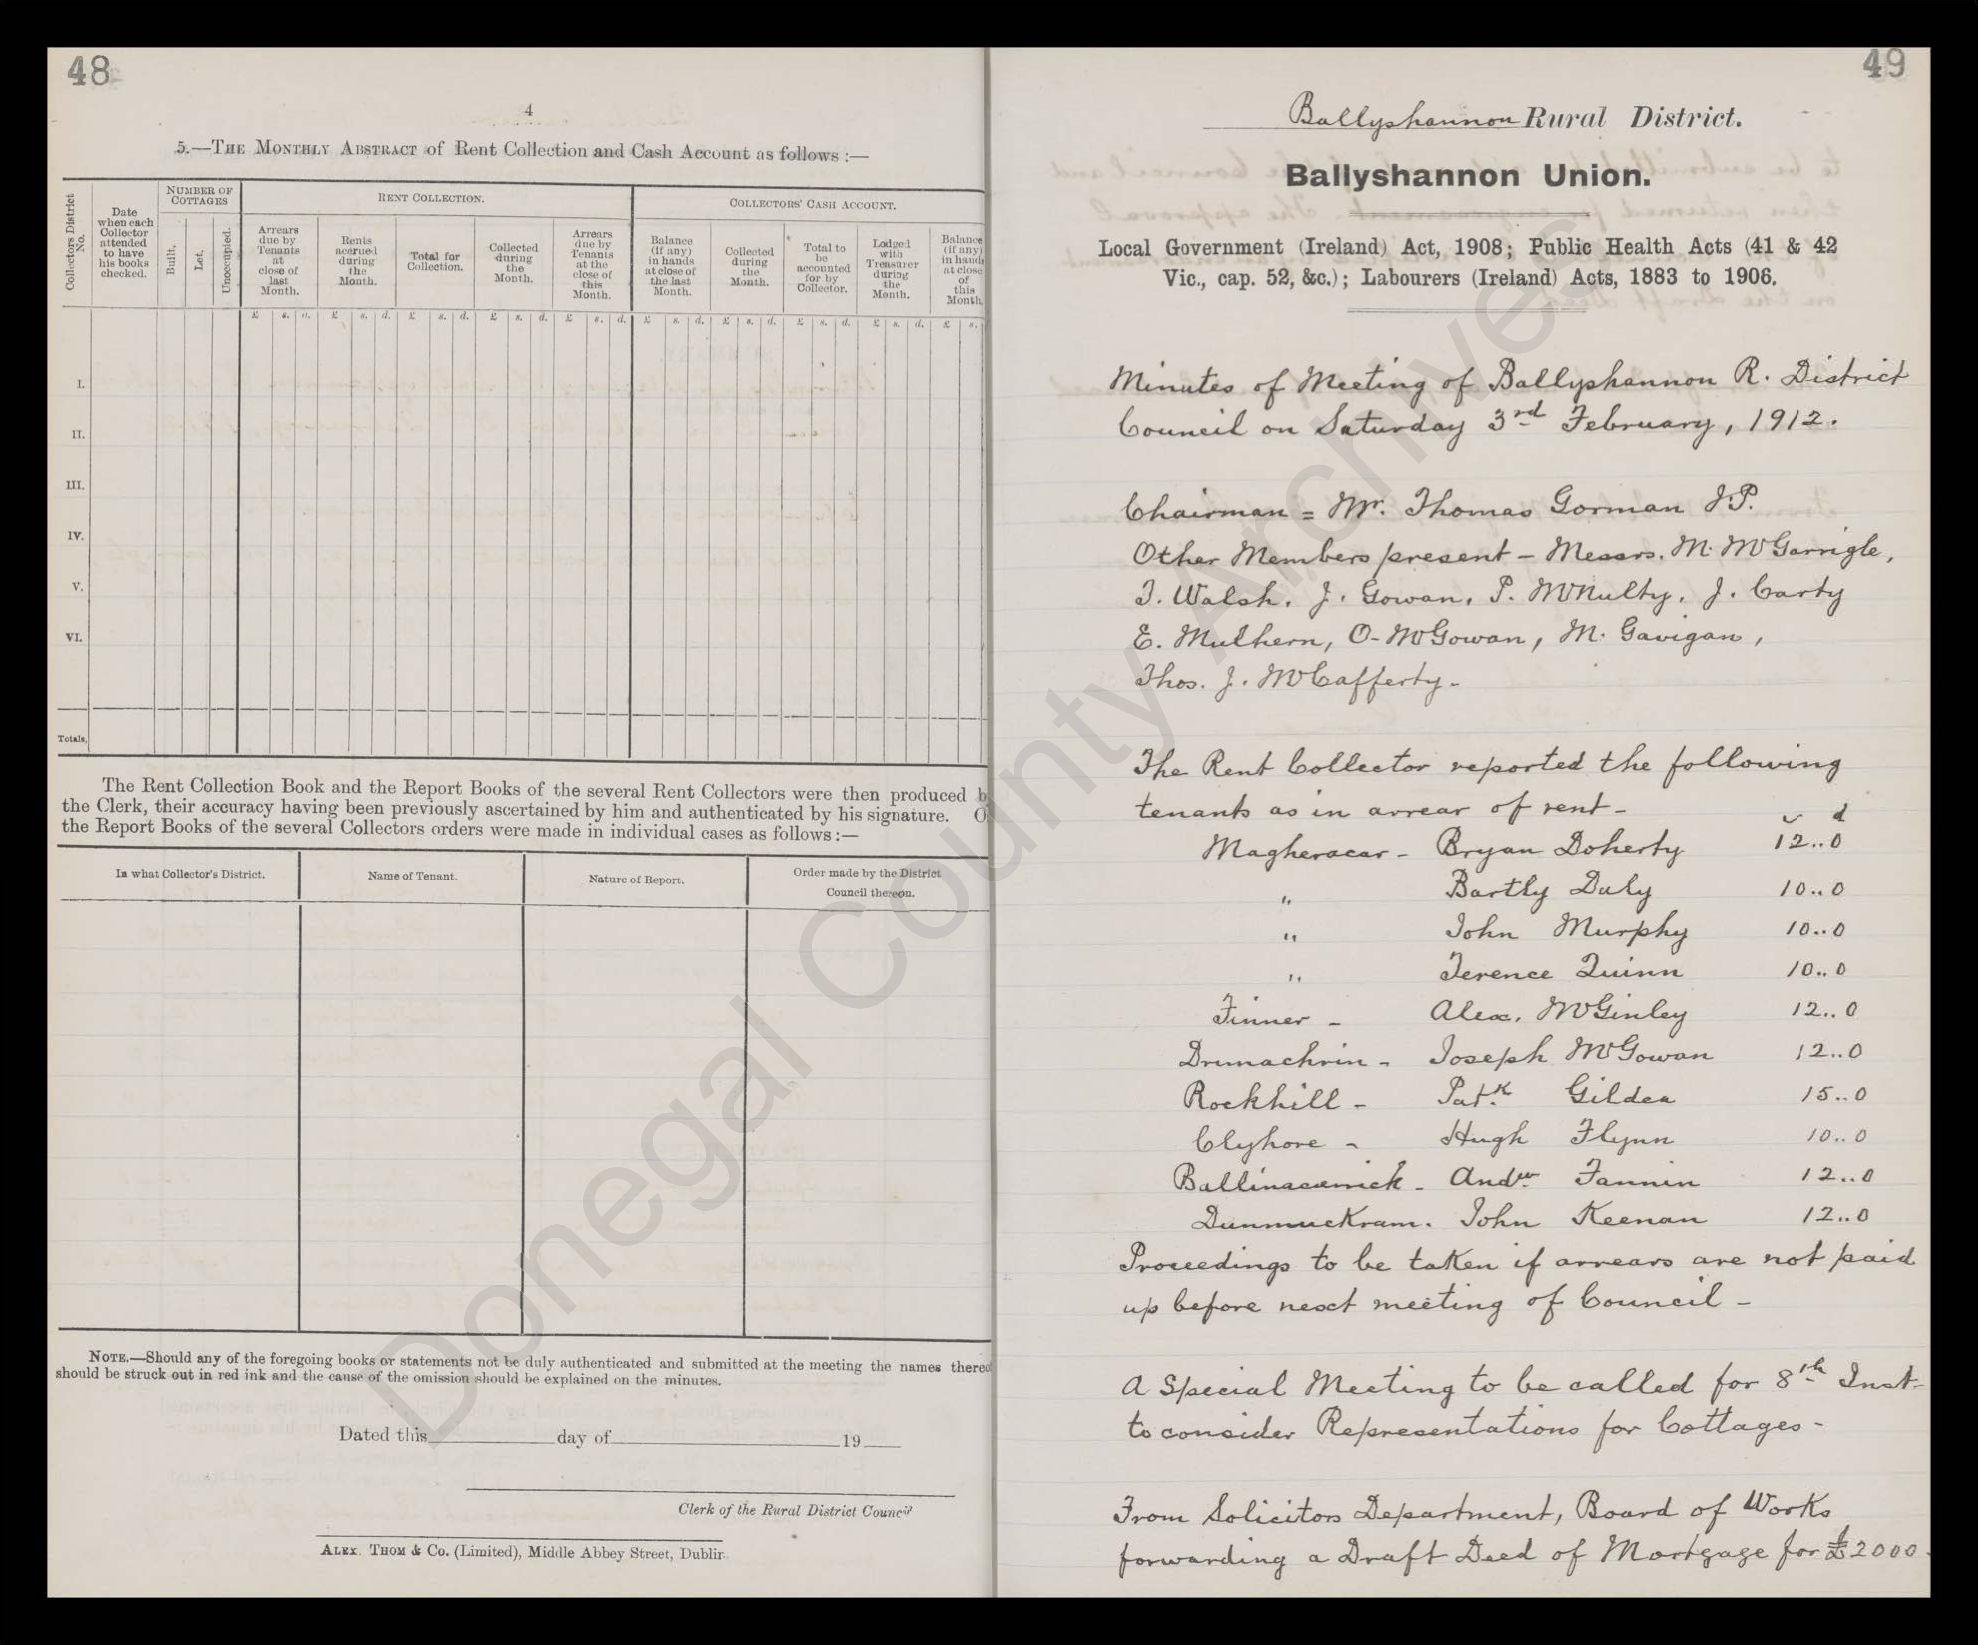 48
4
5.—THE MONTHLY ABSTRACT of Rent Collection and Cash Account as follows :—
Collectors District No.
Date when each Collector attended to have his books checked.
NUMBER OF COTTAGES
Built.
Let.
Unoccupied.
RENT COLLECTION.
Arrears due by Tenants at close of last Month.
Rents accrued during the Month.
Total for Collection.
Collected during the Month.
Arrears due by Tenants at the close of this Month.
COLLECTORS' CASH ACCOUNT.
Balance (if any) in hands at close of the last Month.
Collected during the Month.
Total to be accounted for by Collector.
Lodged with Treasurer during the Month.
Balance (if any) in hands at close of this Month
£ s. d. £ s. d. £ s. d. £ s. d. £ s. d. £ s. d. £ s. d. £ s. d. £ s. d. £ s.
I.
II.
III.
IV.
V.
VI.
Totals,
The Rent Collection Book and the Report Books of the several Rent Collectors were then produced b
the Clerk, their accuracy having been previously ascertained by him and authenticated by his signature. O
the Report Books of the several Collectors orders were made in individual cases as follows :—
In what Collector's District.
Name of Tenant.
Nature of Report.
Order made by the District
Council thereon.
NOTE.—Should any of the foregoing books or statements not be duly authenticated and submitted at the meeting the names thereo
should be struck out in red ink and the cause of the omission should be explained on the minutes.
Dated this day of 19
Clerk of the Rural District Council
ALEX. THOM & Co. (Limited), Middle Abbey Street, Dublin.
49
Ballyshannon Rural District.
Ballyshannon Union.
Local Government (Ireland) Act, 1908; Public Health Acts (41 & 42
Vic., cap. 52, &c.); Labourers (Ireland) Acts, 1883 to 1906.
Minutes of Meeting of Ballyshannon R. District
Council on Saturday 3rd February, 1912.
Chairman = Mr. Thomas Gorman J.P.
Other Members present – Messrs. M. McGarrigle,
T. Walsh, J. Gowan, P. McNulty, J. Carty
E. Mulhern, O- McGowan, M. Gavigan,
Thos. J. McCafferty-
The Rent Collector reported the following
tenants as in arrear of rent-
s d
Magheracar - Bryan Doherty 12..0
" Bartly Daly 10..0
" John Murphy 10..0
" Terence Quinn 10..0
Finner - Alex. McGinley 12..0
Drumachrin - Joseph McGowan 12..0
Rockhill - Patk Gildea 15..0
Clyhore - Hugh Flynn 10..0
Ballinacarrick - Andw Fannin 12..0
Dunmuckram. John Keenan 12..0
Proceedings to be taken if arrears are not paid
up before next meeting of Council -
A Special Meeting to be called for 8th Inst-
to consider Representations for Cottages -
From Solicitors Department, Board of Works
forwarding a Draft Deed of Mortgage for £2000
Donegal County Archives